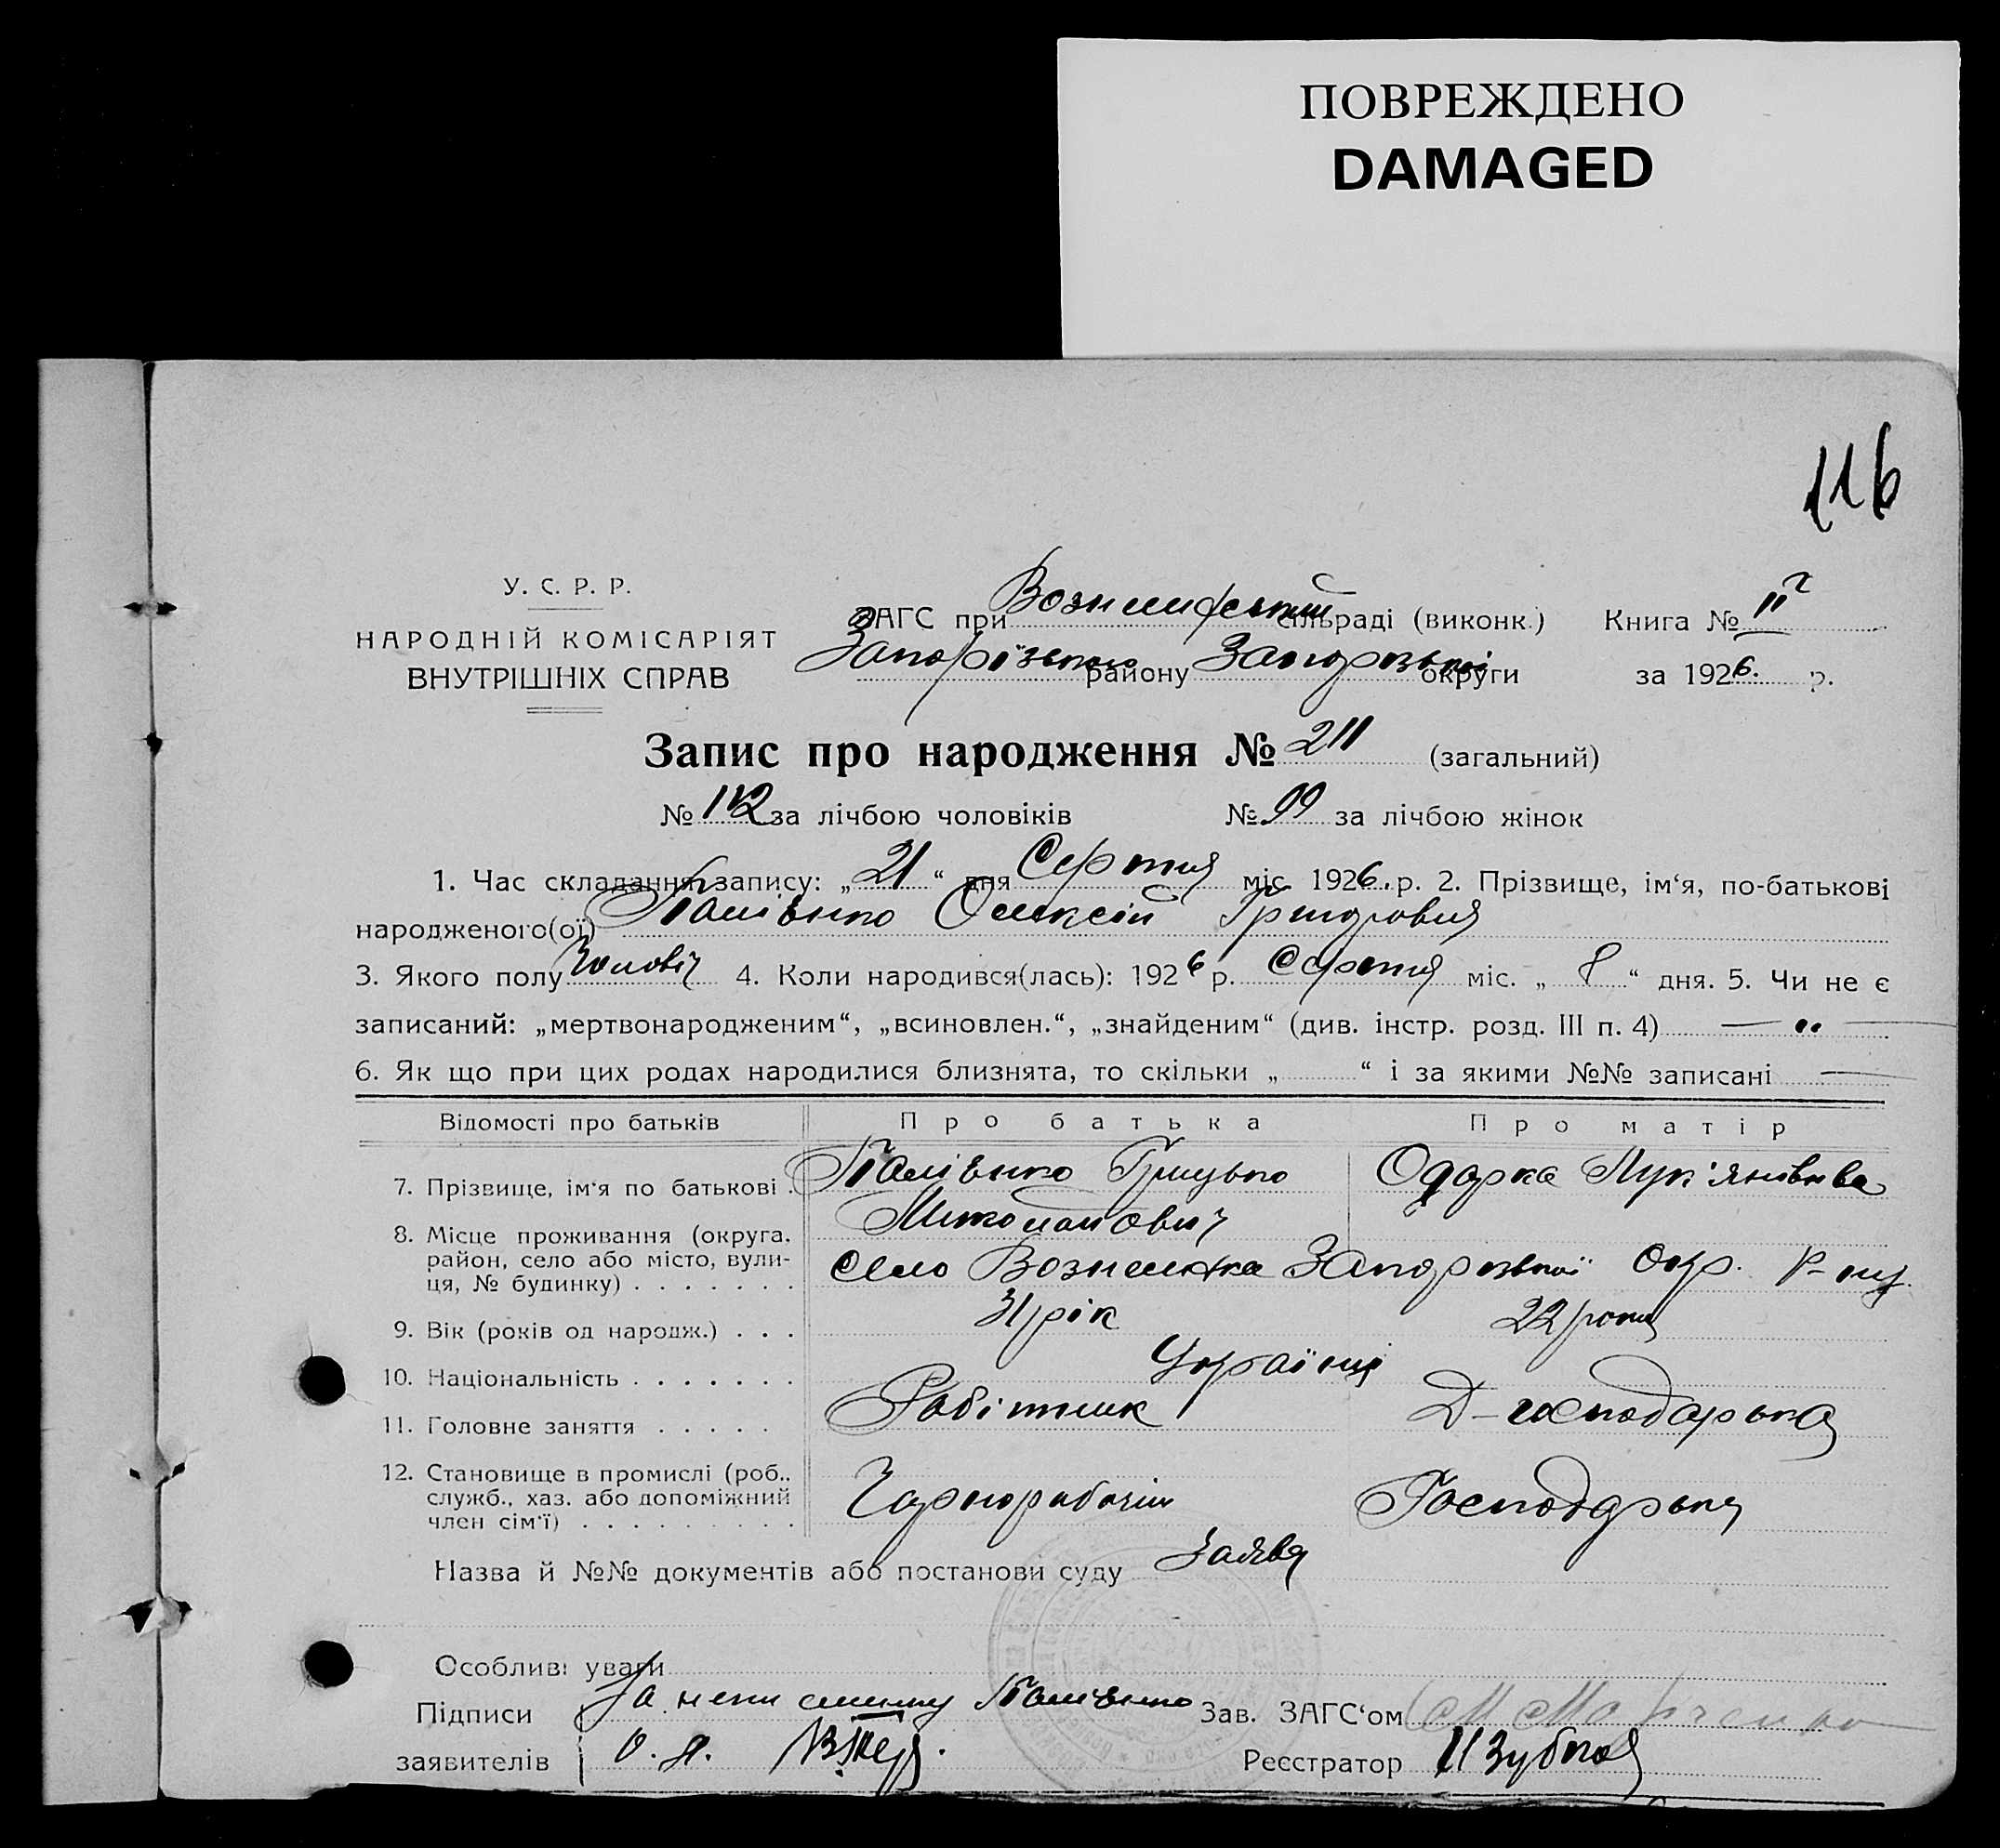 ПОВРЕЖДЕНО
DAMAGED
116
У. С. Р. Р.
НАРОДНІЙ КОМІСАРІЯТ
ВНУТРІШНІХ СПРАВ
ЗАГС при Вознесенській сільраді (виконк.) Книга № II
Запорізького району Запорізької округи за 1926. р.
Запис про народження № 211 (загальний)
№ 112 за лічбою чоловіків № 99 за лічбою жінок
1. Час складання запису: „21“ дня Серпня міс. 1926. р. 2. Прізвище, ім‘я, по-батькові
народженого(ої) Палівико Олексій Григорович
3. Якого полу Чоловіч 4. Коли народився(лась): 1926 р. Серпня міс. „8“ дня. 5. Чи не є
записаний: „мертвонародженим“, „всиновлен.“, „знайденим“ (див. інстр. розд. III п. 4) — „ —
6. Як що при цих родах народилися близнята, то скільки „ “ і за якими №№ записані —
Відомості про батьків Про батька Про матір
7. Прізвище, ім‘я по батькові . Грицько Одарка Лук‘янівна
Миколайович
8. Місце проживання (округа, район, село або місто, вули-
ця, № будинку) . . . . . . . Село Вознесенка Запорізької Окр. Р-ну
9. Вік (років од народж.) . . . 31 рік 22 роки
10. Національність . . . . . . . Українці
11. Головне заняття . . . . . Робітник Д–господарька
12. Становище в промислі (роб.,
служб., хаз. або допоміжний
член сім‘ї) . . . . . . . . . Чорноробочій Господарька
Назва й №№ документів або постанови суду Заява
Особливі уваги
Підписи За неписьмену Зав. ЗАГС‘ом
заявителів О. Л. Реєстратор Зубко